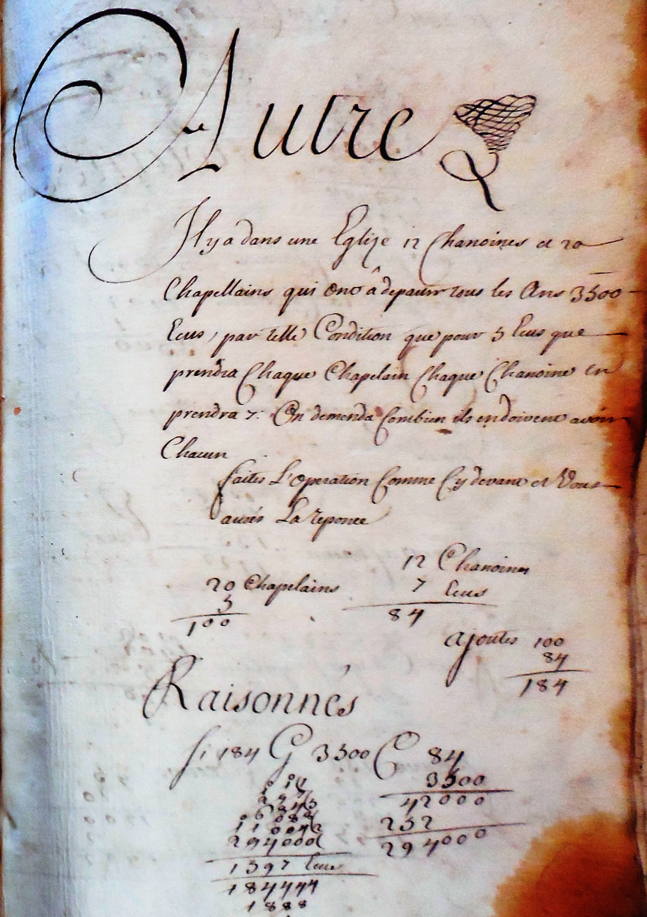 Autre
Il y a dans une Eglize 12 Chanoines et 20
Chapellains qui ont â departir tous les Ans 3500
Ecus, par telle Condition que pour 5 Ecus que
prendra Chaque Chapelain Chaque Chanoine en
prendra 7. On demenda Combien ils endoivent avoir
Chacun
faites L'operation Comme Cy devant et Vous
aurés La reponce
12 Chanoines
20 Chapelains 7 Ecus
5
100 84
ajoutes 100
84
184
Raisonnés
Si 184 G 3500 C 84
3500
42000
252
294000
294000
1597 Ecus
184444
1888